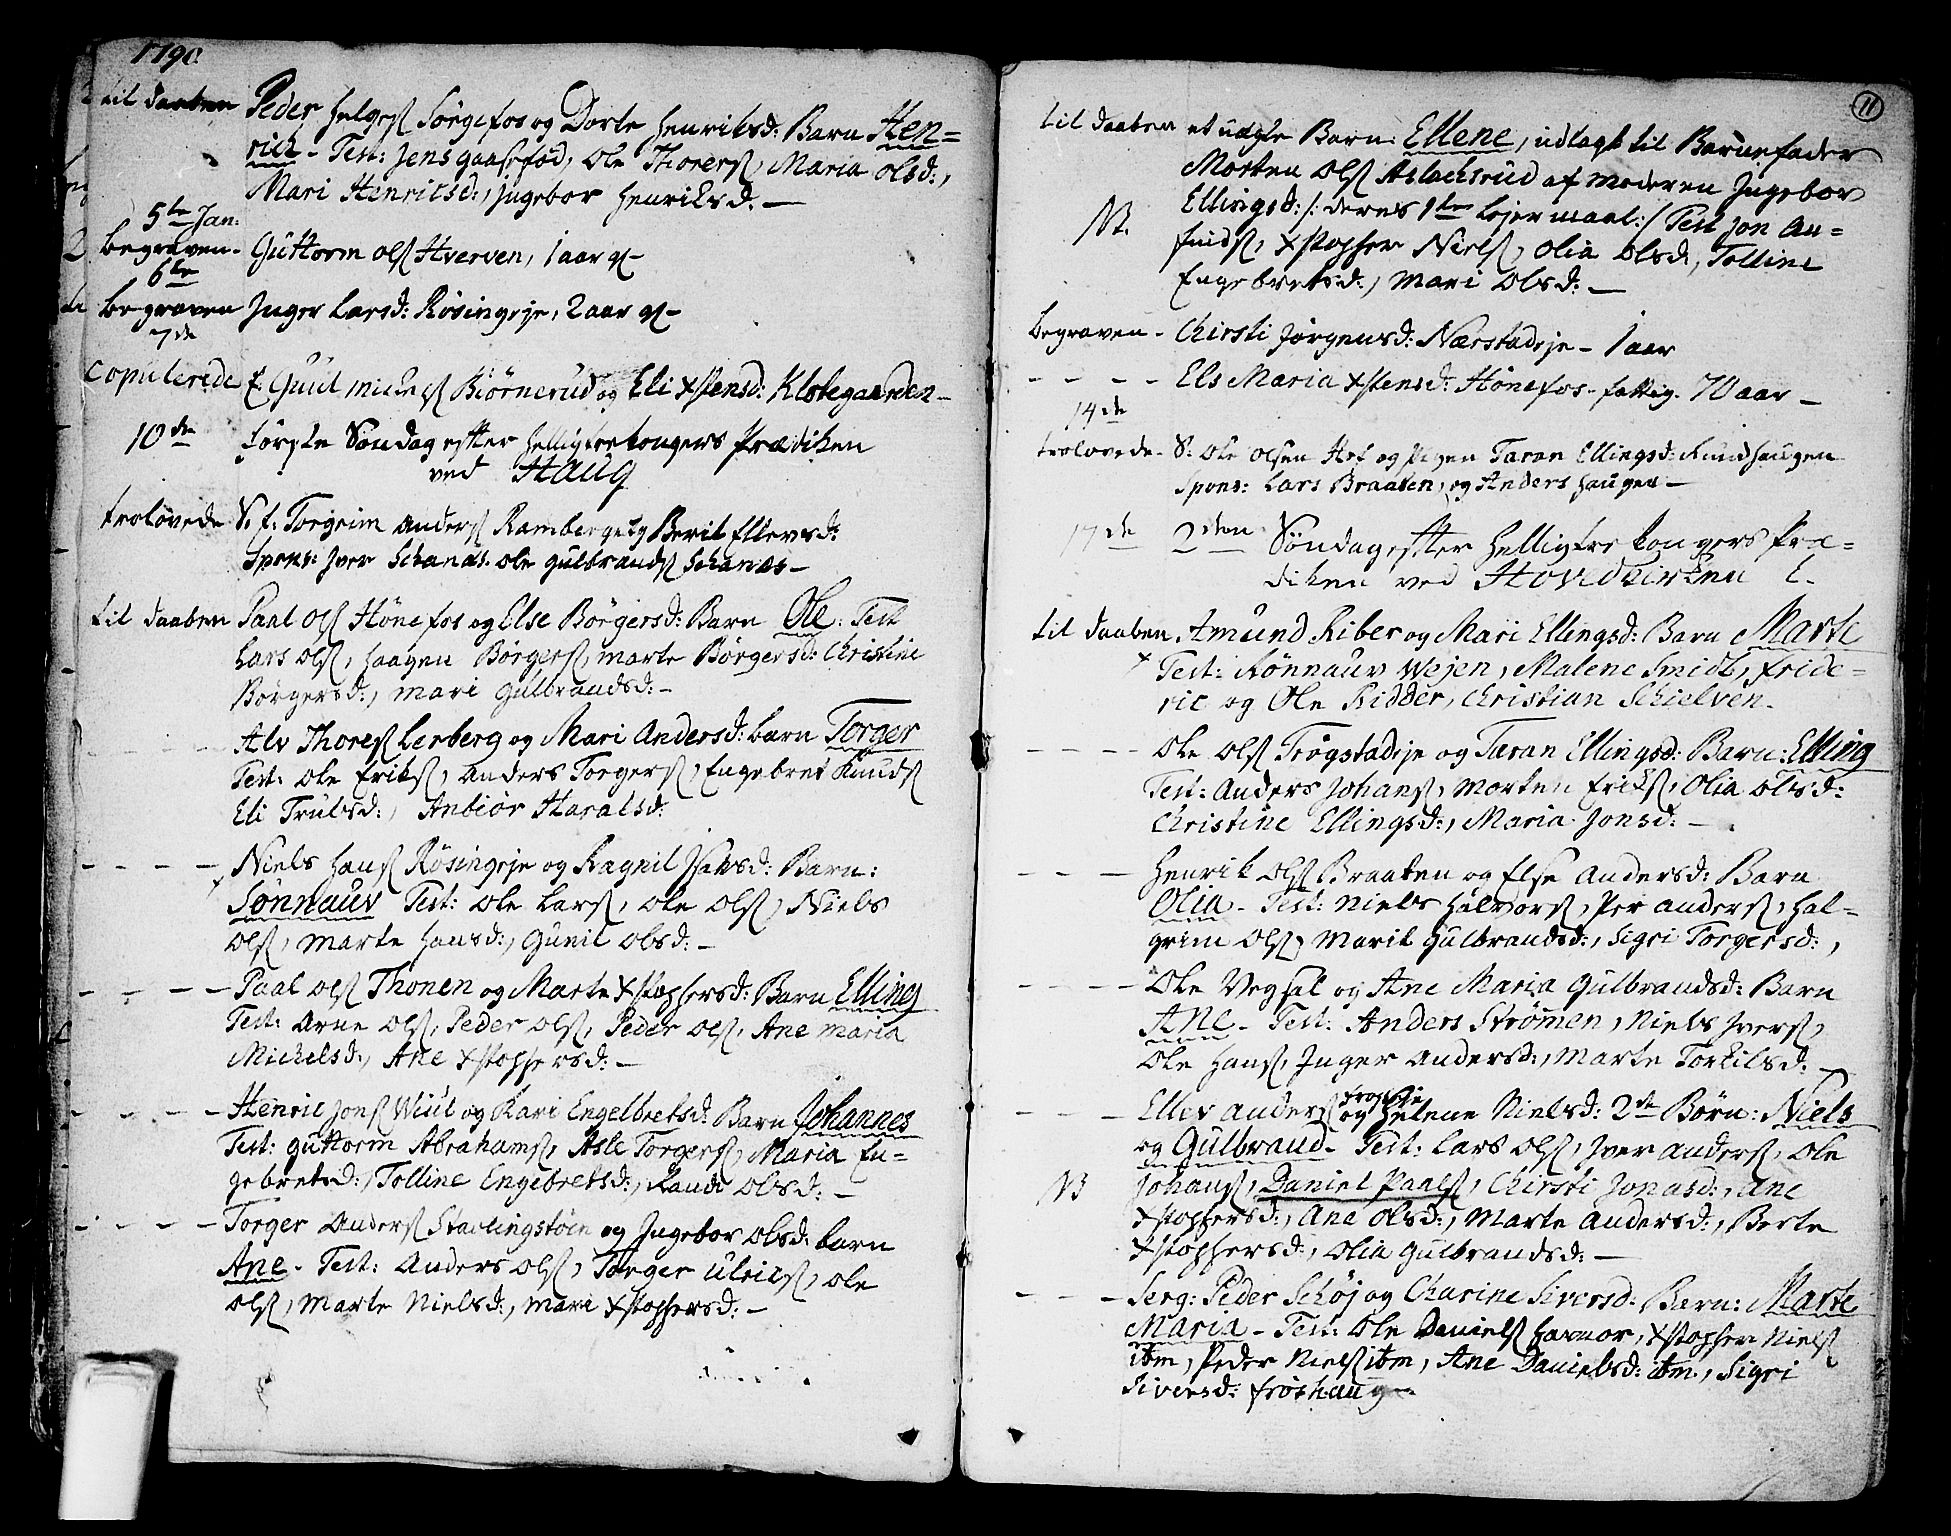 1790
til daaben Peder Helgesſ Sörgefos og Dorte Henriksd: Barn Hen=
rich - Test: Jens gaasefod, Ole Thorersſ, Maria olsd:,
Mari Henriksd:, Jngebor Henriksd. —
5te Jan:
begraven - Guttorm olsſ Hverven, 1 aar gl -
6te
begraven Jnger Larsd: Røsingeje, 2 aar gl -
7de
Copulerede f: Guul Biörnerud og Eli Xstensd: Klokegaarden -
10de Förste Söndag efter Helligtrekongers Prædiken
ved Haug
trolovede S. f. Torgrim Andersſ Ramberge og Berit Ellevsd:
Spons: Jver Schanes. Ole gulbrandsſ Schanes -
til daaben Paal Olsſ Hönefos og Else Börgersd: Barn Ole. Test
Lars olsſ, Haagen Börgersſ, marte Börgersd: Christine
Börgersd:, mari gulbrandsd: -
- - - Alv Thoresſ Lerberg og Mari Andersd: barn Torger
Test: Ole Eriksſ, Anders Torgersſ, Engebret Knudsſ
Eli Trulsd:, Anbiör Haralsd:
- - - - Niels Hansſ Røsingeje og Ragnil Jsaksd: Barn:
Sönnauv Test: Ole Larsſ, Ole Olsſ, Niels
Olsſ, Marte Hansd:, Gunil Olsd: -
- - - - Paal olsſ Thonen og Marte Xstophersd: Barn Elling
Test: Arne Olsſ, Peder Olsſ, Peder Olsſ, Ane maria
Michelsd:, Ane Xstophersd: -
- - - - Henric Jonsſ Wiul og Kari Engelbretsd: Barn Johannes
Test: guttorm Abrahamsſ, Asle Torgersſ, Maria En=
gebretsd:, Tolline Engebretsd:, Rande Olsd: -
- - - - Torger Andersſ Stavlingstöen og Jngebor Olsd: barn
Ane - Test: Anders Olsſ, Torger Ulricsſ, Ole
Olsſ, Marte Nielsd:, mari Xstophersd: -
11
til daaben et uægte Barn: Ellene, udlagt til Barnefader
Morten Olsſ Aslachsrud af moderen Jngebor
NB. Ellingsd: /: deres 1te Lejermaal :/ Test Jon An=
findsſ, Xstopher Nielsſ, Olia Olsd:, Tolline
Engebretsd:, Mari Olsd: -
begraven - Chirsti Jörgensd: Nærstadeje - 1 aar
- - - - Els Maria Xstensd: Hönefos - fattig. 70 aar -
14de
trolovede - S. Ole Olsen Hof og Pigen Taran Ellingsd: Rundhaugen
Spons: Lars Braaten, og Anders Haugen -
17de 2den Söndag efter Helligtrekongers Præ=
diken ved Hovedkirken
til daaben Amund Riber og Mari Ellingsd: Barn Marte
Test: Rönnauv Wejen, Malene Smidt, Fride=
ric og Ole Ridder, Christian Schielven.
- - - - Ole Olsſ Trögstadeje og Taran Ellingsd: Barn: Elling
Test: Anders Johansſ, Morten Eriksſ, Olia Olsd:
Christine Ellingsd:, Maria Jonsd: -
- - - Henrik Olsſ Braaten og Else Andersd: Barn
Olia - Test: Niels Halvorsſ, Per Andersſ, Hal=
grim Olsſ, Marit Gulbrandsd:, Sigri Torgersd:,
- - - - Ole Veghal og Ane Maria Gulbrandsd: Barn
Ane - Test: Anders Strömen, Niels Jversſ,
Ole Hansſ, Jnger Andersd:, Marte Torkilsd: -
- - - Ellev Andersſ og Helene Nielsd: 2de Börn: Niels
og Gulbrand - Test: Lars Olsſ, Jver Andersſ, Ole
NB Johansſ, Daniel Paalsſ, Chirsti Jonasd:, Ane
Xstophersd:, Ane Olsd:, Marte Andersd:, Berte
Xstophersd:, Olia Gulbrandsd: -
- - - Serg: Peder Schöj og Charine Siversd: Barn: Marte
Maria - Test: Ole Danielsſ Harmor, Xstopher Nielsſ
itm, Peder Nielsſ itm, Ane Danielsd: itm, Sigri
Siversd: Fröshaugen